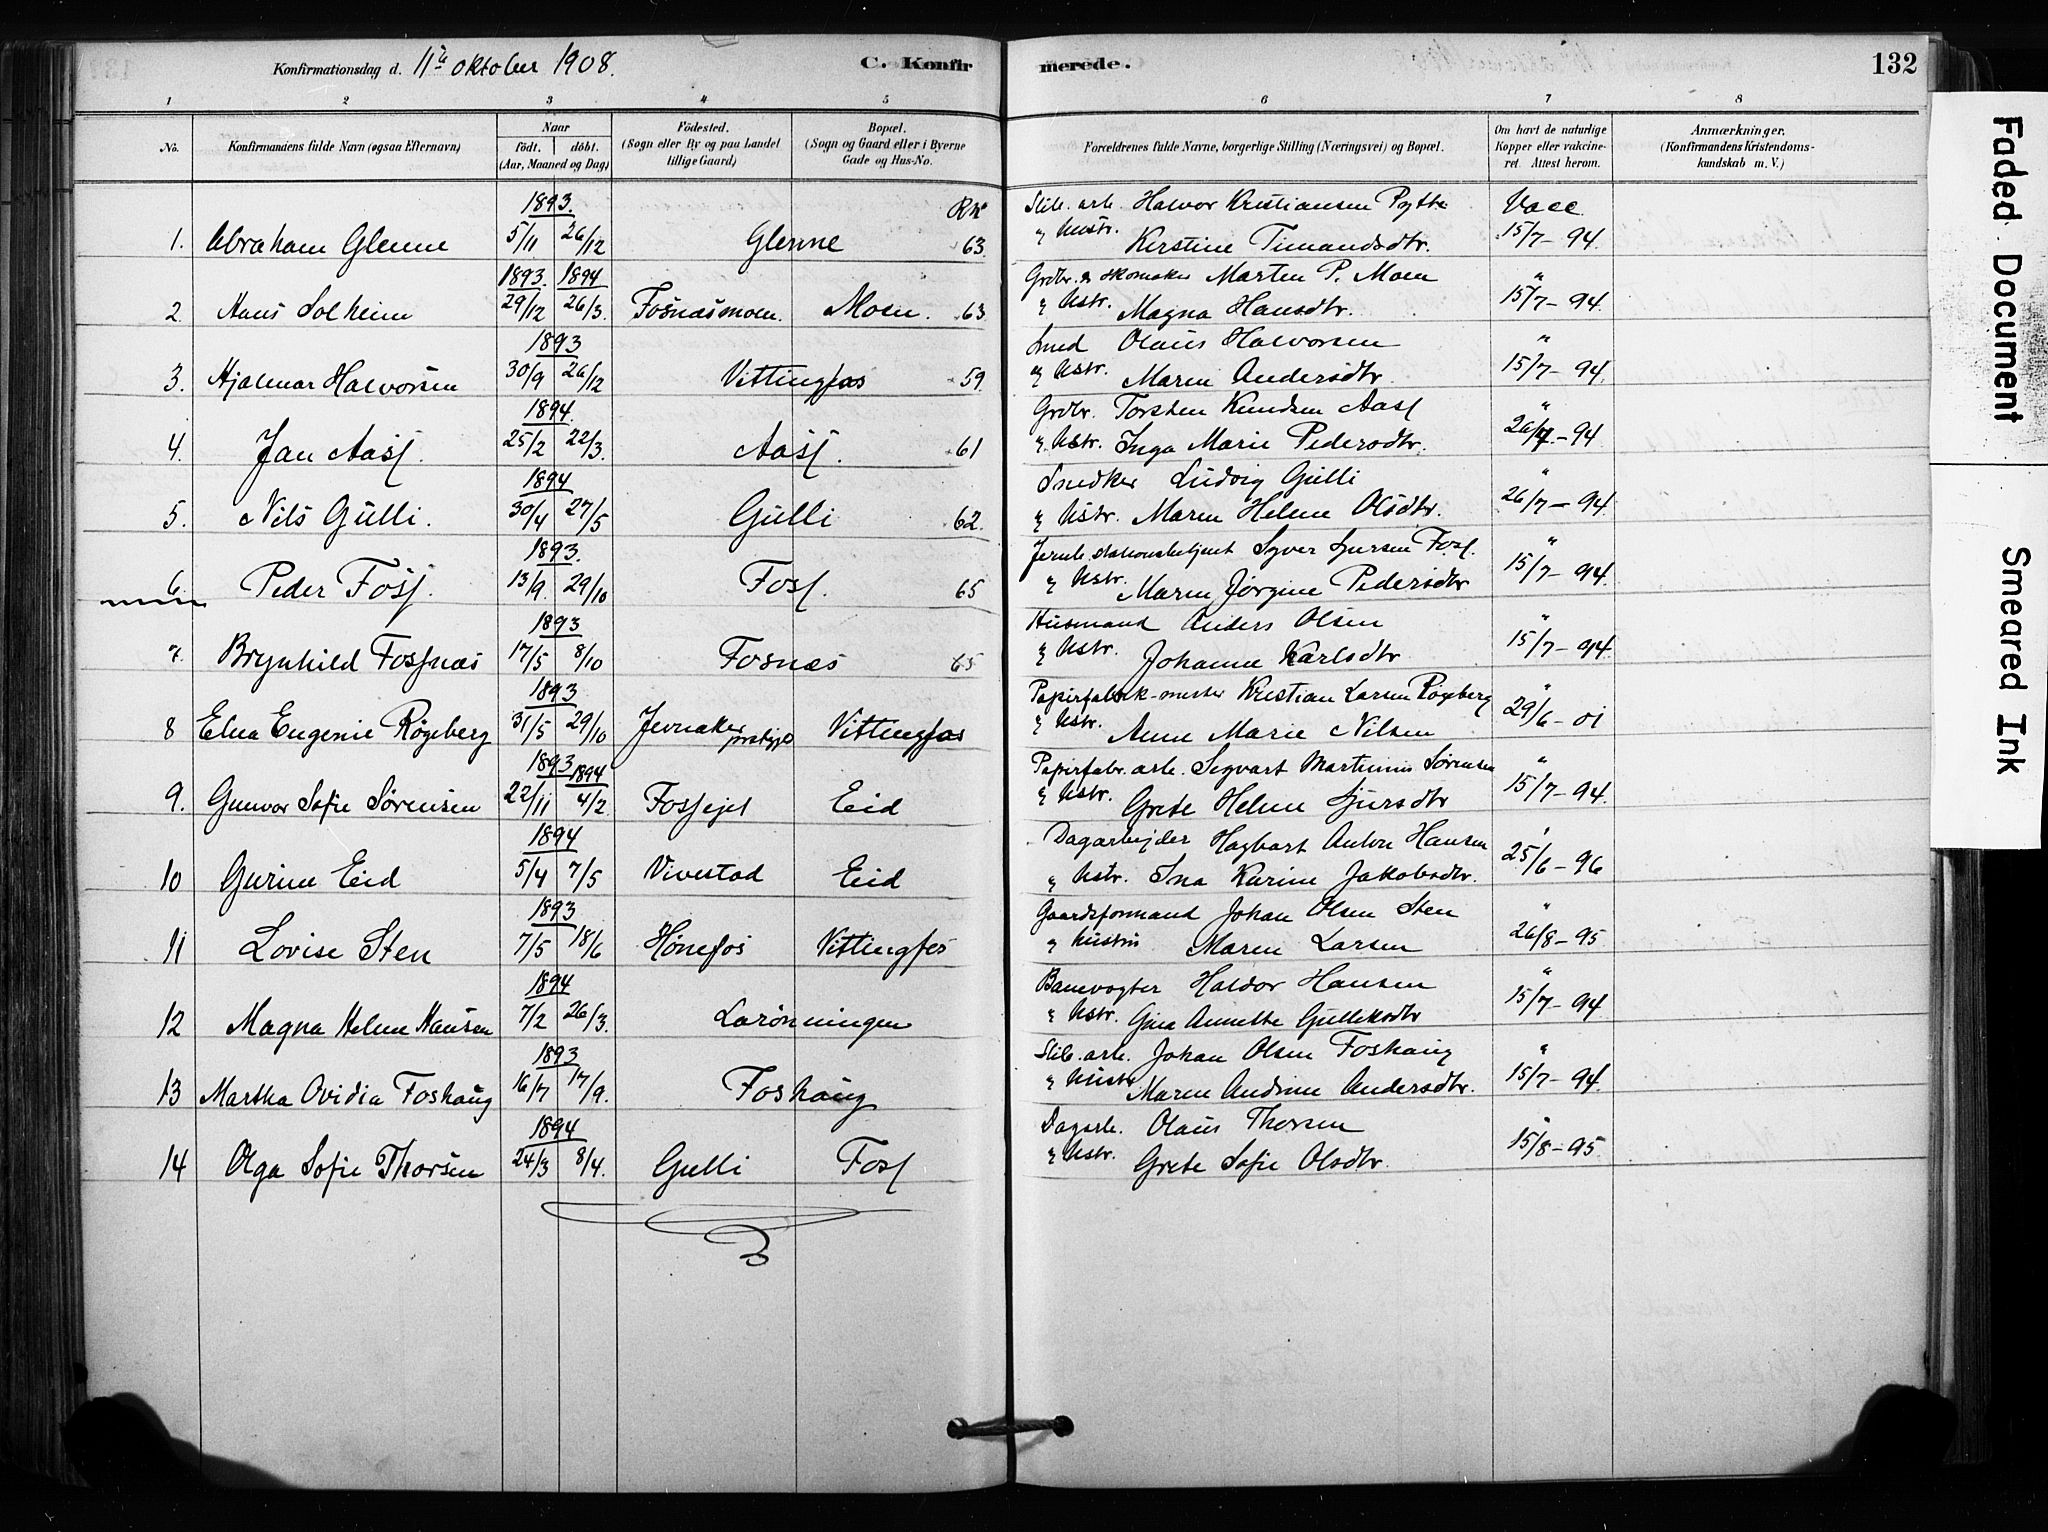 Konfirmationsdag d. 11te Oktober 1908.
C. Konfirmerede.
132
1 2 3 4 5 6 7 8
No.
Konfirmandens fulde Navn (ogsaa Efternavn)
Naar
født. døbt.
(Aar, Maaned og Dag)
Födested.
(Sogn eller By og paa Landet
tillige Gaard)
Bopæl.
(Sogn og Gaard eller i Byerne
Gade og Hus-No.
Forældrenes fulde Navne, borgerlige Stilling (Næringsvei) og Bopæl.
Om havt de naturlige
Kopper eller vakcine-
ret. Attest herom.
Anmærkninger.
(Konfirmandens Kristendoms-
kundskab m. V.)
1893. Slib. arb. Halvor Kristiansen Rytte Vacc.
1. Abraham Glenne 5/11 26/12 Glenne 63. " Hustr. Kirstine Timandsdtr. 15/7-94.
1893. 1894 Grdbr. & skomaker Marten P. Moen "
2. Hans Solheim 29/12 26/3. Fosnæsmoen. Moen. 63 & Hstr. Magna Hansdtr. 15/7-94.
1893 Smed Olaus Halvorsen "
3. Hjalmar Halvorsen 30/9 26/12 Vittingfos 59. & Hstr. Maren Andersdtr. 15/7-94.
1894. Grdbr. Torsten Knudsen Aasf "
4. Jan Aasf. 25/2 22/3. Aasf. 61 & Hstr. Inga Marie Pedersdtr. 26/7-94
1894 Snedker Ludvig Gulli "
5. Nils Gulli. 30/4 27/5 Gulli 62. & Hstr. Maren Helene Olsdtr. 26/7-94
1893. Jernb. stationsbetjent Syver Sjursen Fosf. "
6. Peder Fosf. 13/9. 29/10 Fosf. 65 & Hstr. Maren Jørgine Pedersdtr 15/7-94.
1893 Husmand Anders Olsen "
7. Brynhild Fosfnæs 17/5 8/10 Fosnæs 65 & Hstr. Johanne Karlsdtr 15/7-94.
1893 Papirfabrik-mester Kristian Larsen Røgeberg "
8 Elna Eugenie Røgeberg 31/5 29/10 Jevnaker prstgjld Vittingfos & Hstr. Anne Marie Nilsen 29/6-01
1893 1894 Papirfabr. arb. Segvart Martinius Sørensen "
9. Gunvor Sofie Sørensen 22/11 4/2. Fosfejet Eid & Hstr. Grete Helene Sjursdtr 15/7-94.
1894 Dagarbejder Hagbart Anton Hansen
10 Gurine Eid 5/4 7/5 Vivestad Eid & Hstr. Ina Karine Jakobsdtr. 25/6-96
1893 Gaardsformand Johan Olsen Sten "
11 Lovise Sten 7/5 18/6 Hønefos Vittingfos & Hustru Maren Larsen 26/8-95
1894 Banevogter Haldor Hansen "
12 Magna Helene Hansen 7/2 26/3. Larønningen & Hstr. Gina Annette Gulliksdtr 15/7-94
1893 Slib. arb. Johan Olsen Foshaug "
13 Martha Ovidia Foshaug 16/7 17/9. Foshaug & Hustr Maren Andrine Andersdtr. 15/7-94.
1894 Dagarb. Olaus Thorsen "
14 Olga Sofie Thorsen 24/3 8/4. Gulli Fosf & Hstr. Grete Sofie Olsdtr. 15/8-95.
Faded Document
Smeared Ink